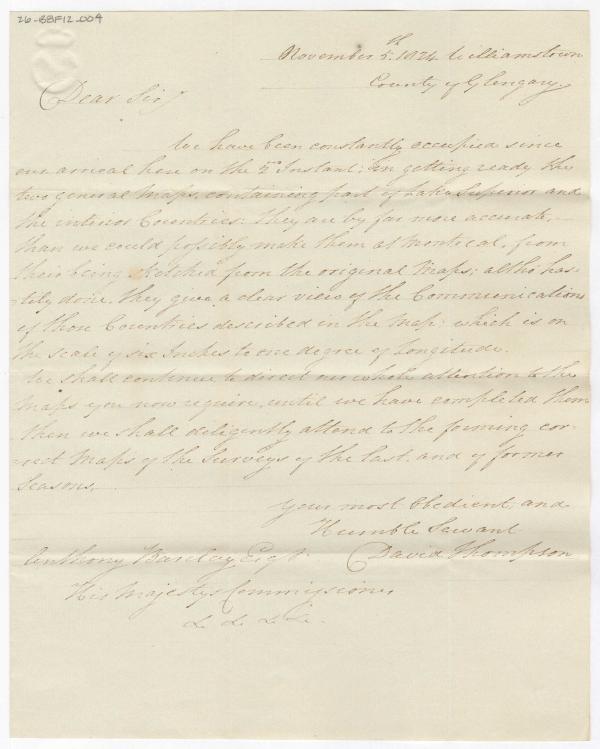 26-BBF12-004
November 5th 1824 Williamstown
County of Glengary
Dear Sir
We have been constantly occupied since
our arrival here on the 2nd Instant; in getting ready the
two general Maps, containing part of Lake Superior and
the interior Countries: they are by far more accurate,
than we could possibly make them at Montreal, from
their being sketched from the original Maps; altho has-
tily done, they give a clear view of the Communications
of those Countries described in the Map: which is on
the scale of six Inches to one degree of Longitude.
We shall continue to direct our whole attention to the
Maps you now require, until we have completed them
then we shall diligently attend to the forming cor-
-rect Maps of the Surveys of the last, and of former
Seasons.
Your most Obedient and
Humble Servant
David Thompson
Anthony Barclay Esqr
His Majestys Commissioner
&c &c &c &c.